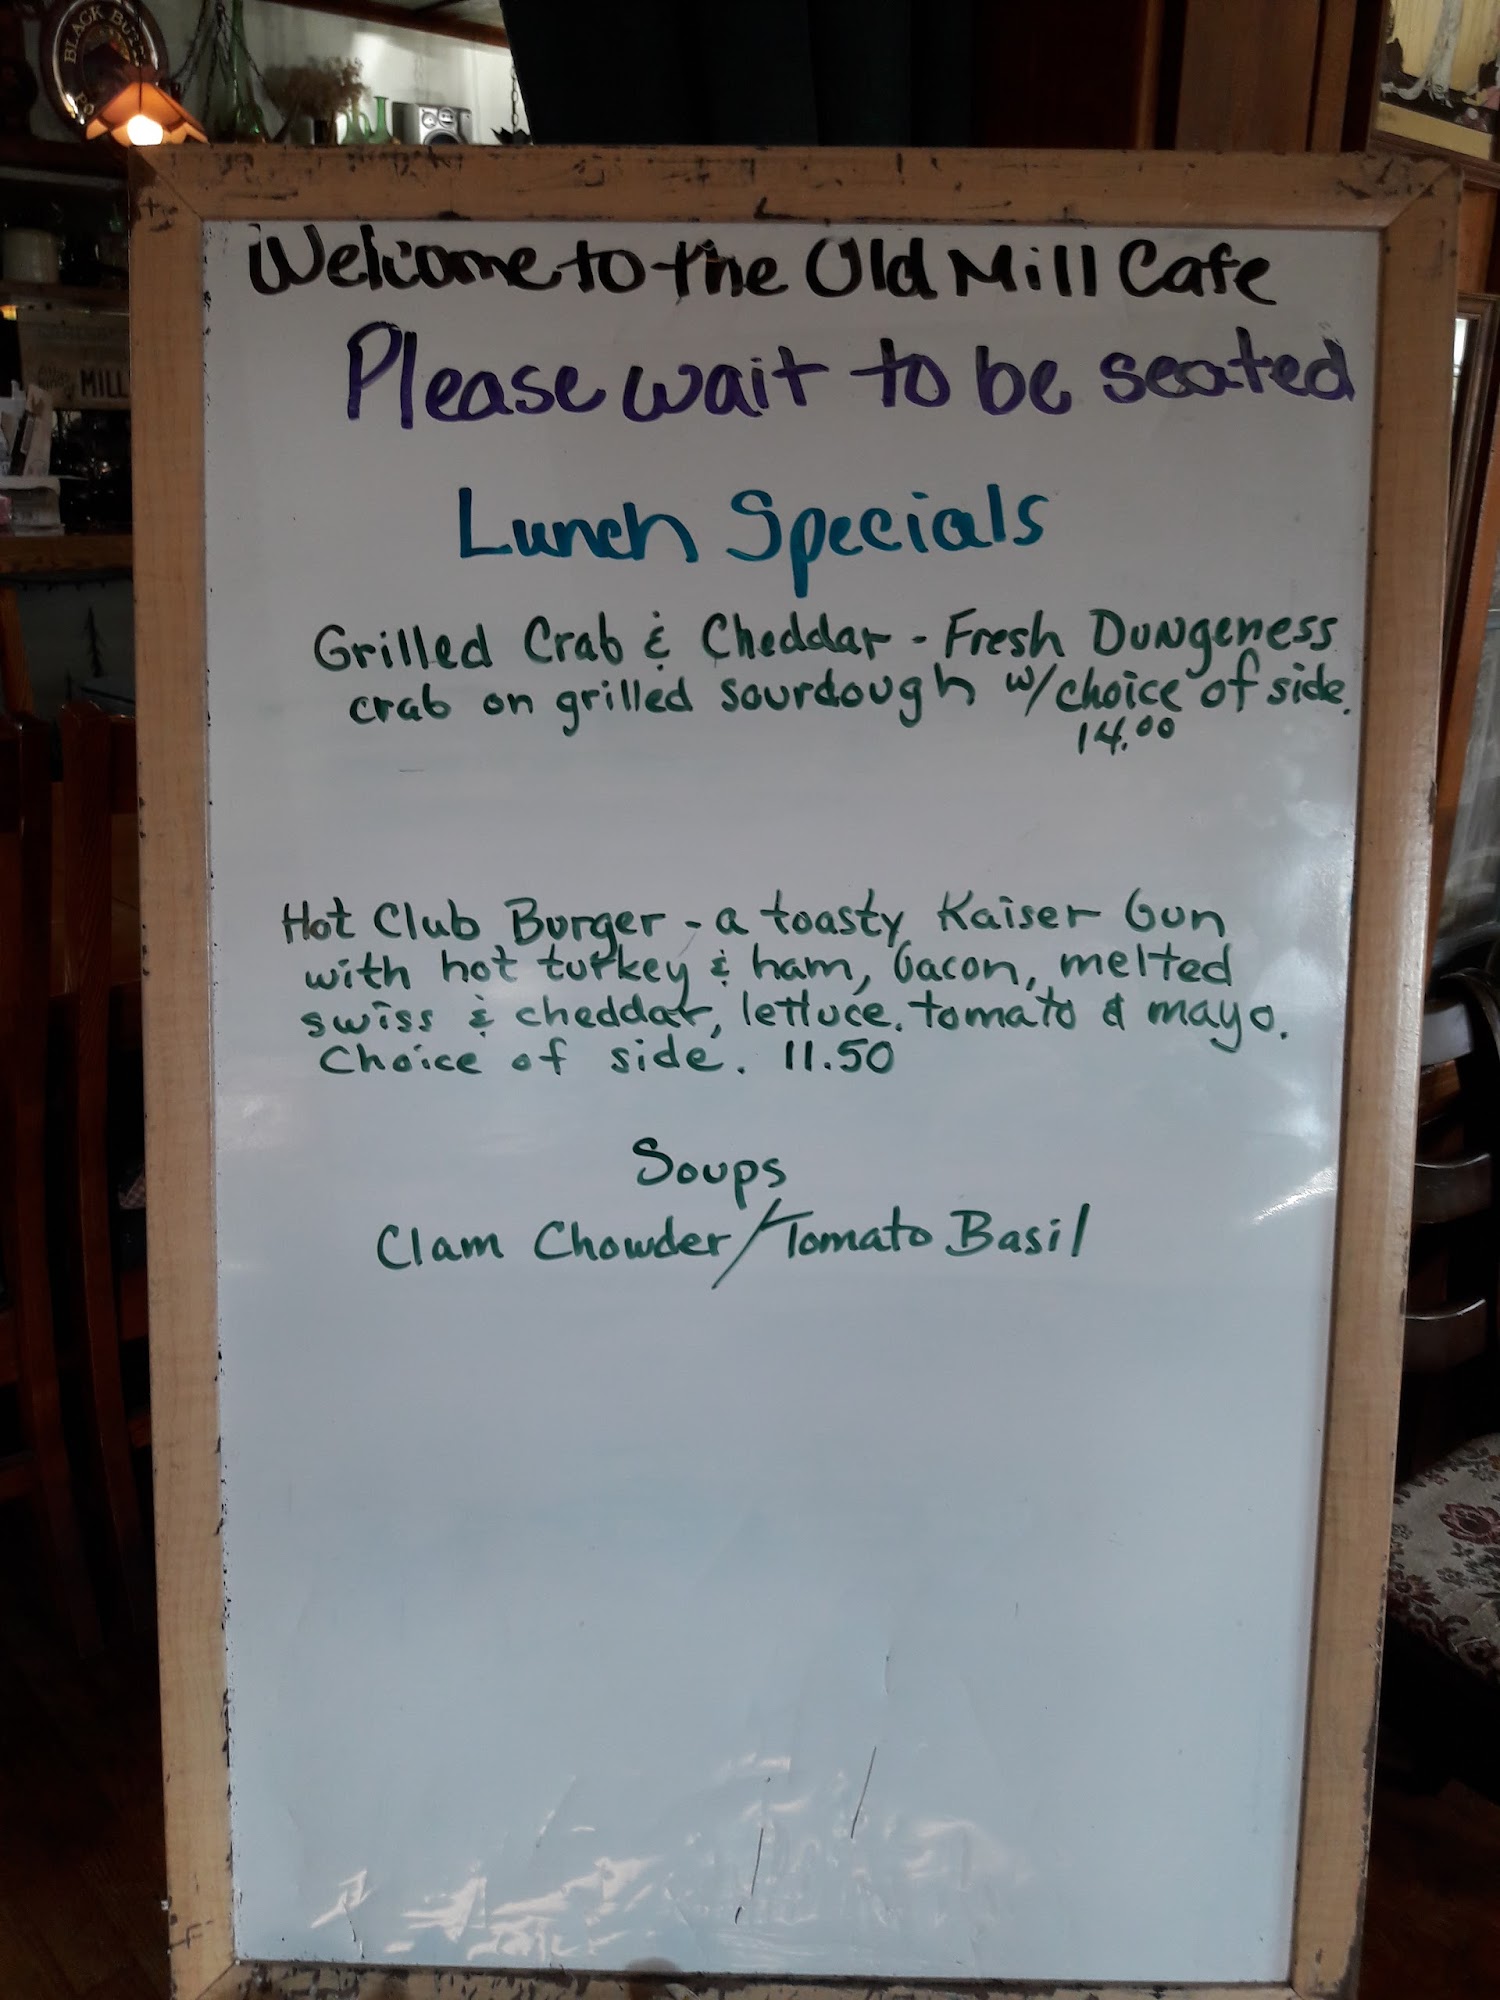 BLACK BU
MILL
Welcome to the Old Mill Cafe
Please wait to be seated
Lunch Specials
Grilled Crab & Cheddar - Fresh Dungeness
crab on grilled sourdough w/choice of side.
14.00
Hot Club Burger - a toasty Kaiser bun
with hot turkey & ham, bacon, melted
swiss & cheddar, lettuce, tomato & mayo.
Choice of side. 11.50
Soups
Clam Chowder/Tomato Basil